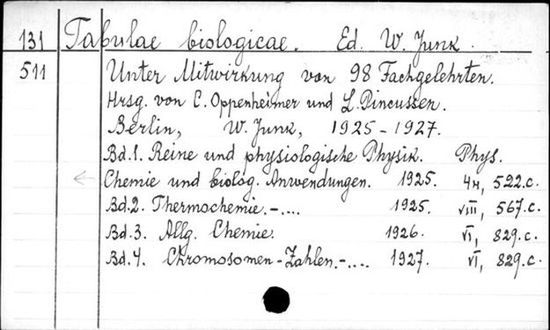 131 Tabulae biologicae. Ed. W. Junk.
511 Unter Mitwirkung von 98 Fachgelehrten.
Hrsg. von C. Oppenheimer und L. Pincussen.
Berlin, W. Junk, 1925-1927.
Bd.1. Reine und physiologische Physik. Phys.
Chemie und biolog. Anwendungen. 1925. 4H, 522.c.
Bd.2. Thermochemie.-.... 1925. VIII, 567.c.
Bd.3. Allg. Chemie. 1926. VI, 829.c.
Bd.4. Chromosomen-Zahlen.-.... 1927. VI, 829.c.